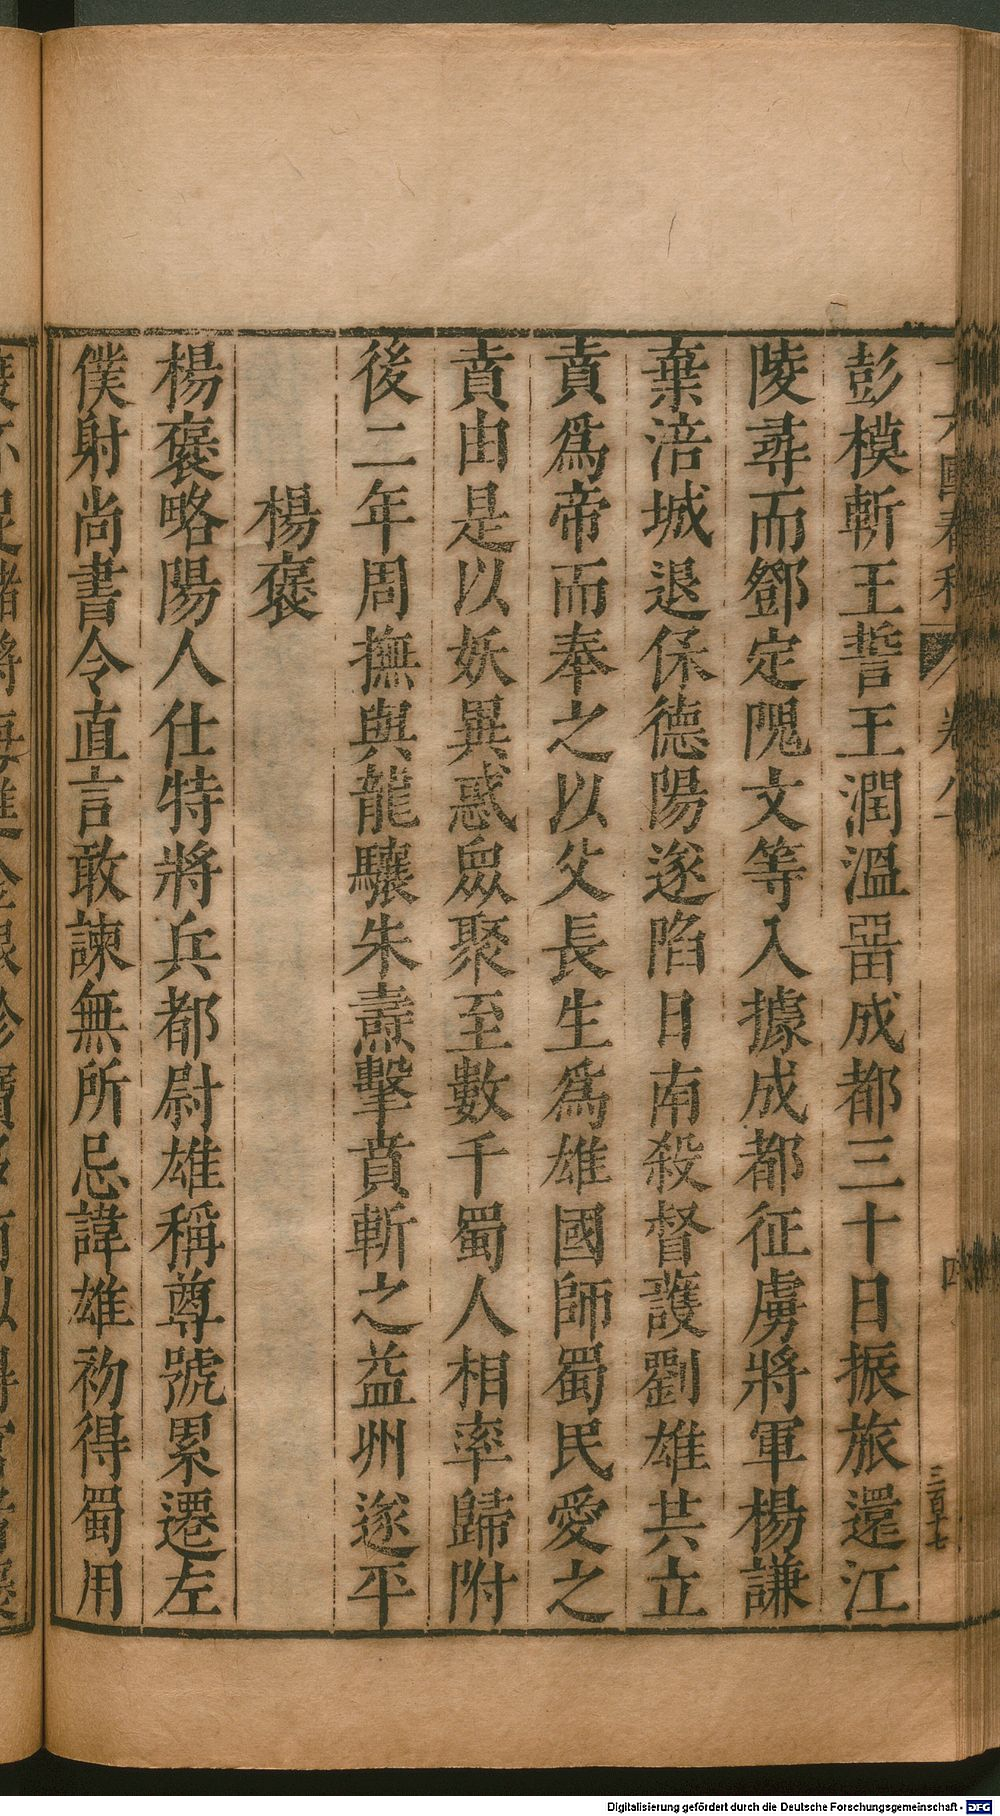 彭模斬王誓王潤溫畱成都三十日振旅還江
陵尋而鄧定隗文等入據成都征虜將軍楊謙
棄涪城退保德陽遂陷日南殺督護劉雄共立
賁爲帝而奉之以父長生爲雄國師蜀民愛之
賁由是以妖異惑眾聚至數千蜀人相率歸附
後二年周撫與龍驤朱燾擊賁斬之益州遂平
楊褒
楊褒略陽人仕特將兵都尉雄稱尊號累遷左
僕射尚書令直言敢諫無所忌諱雄初得蜀用
十六國春秋 卷八十
四
三百十七
Digitalisierung gefördert durch die Deutsche Forschungsgemeinschaft - DFG